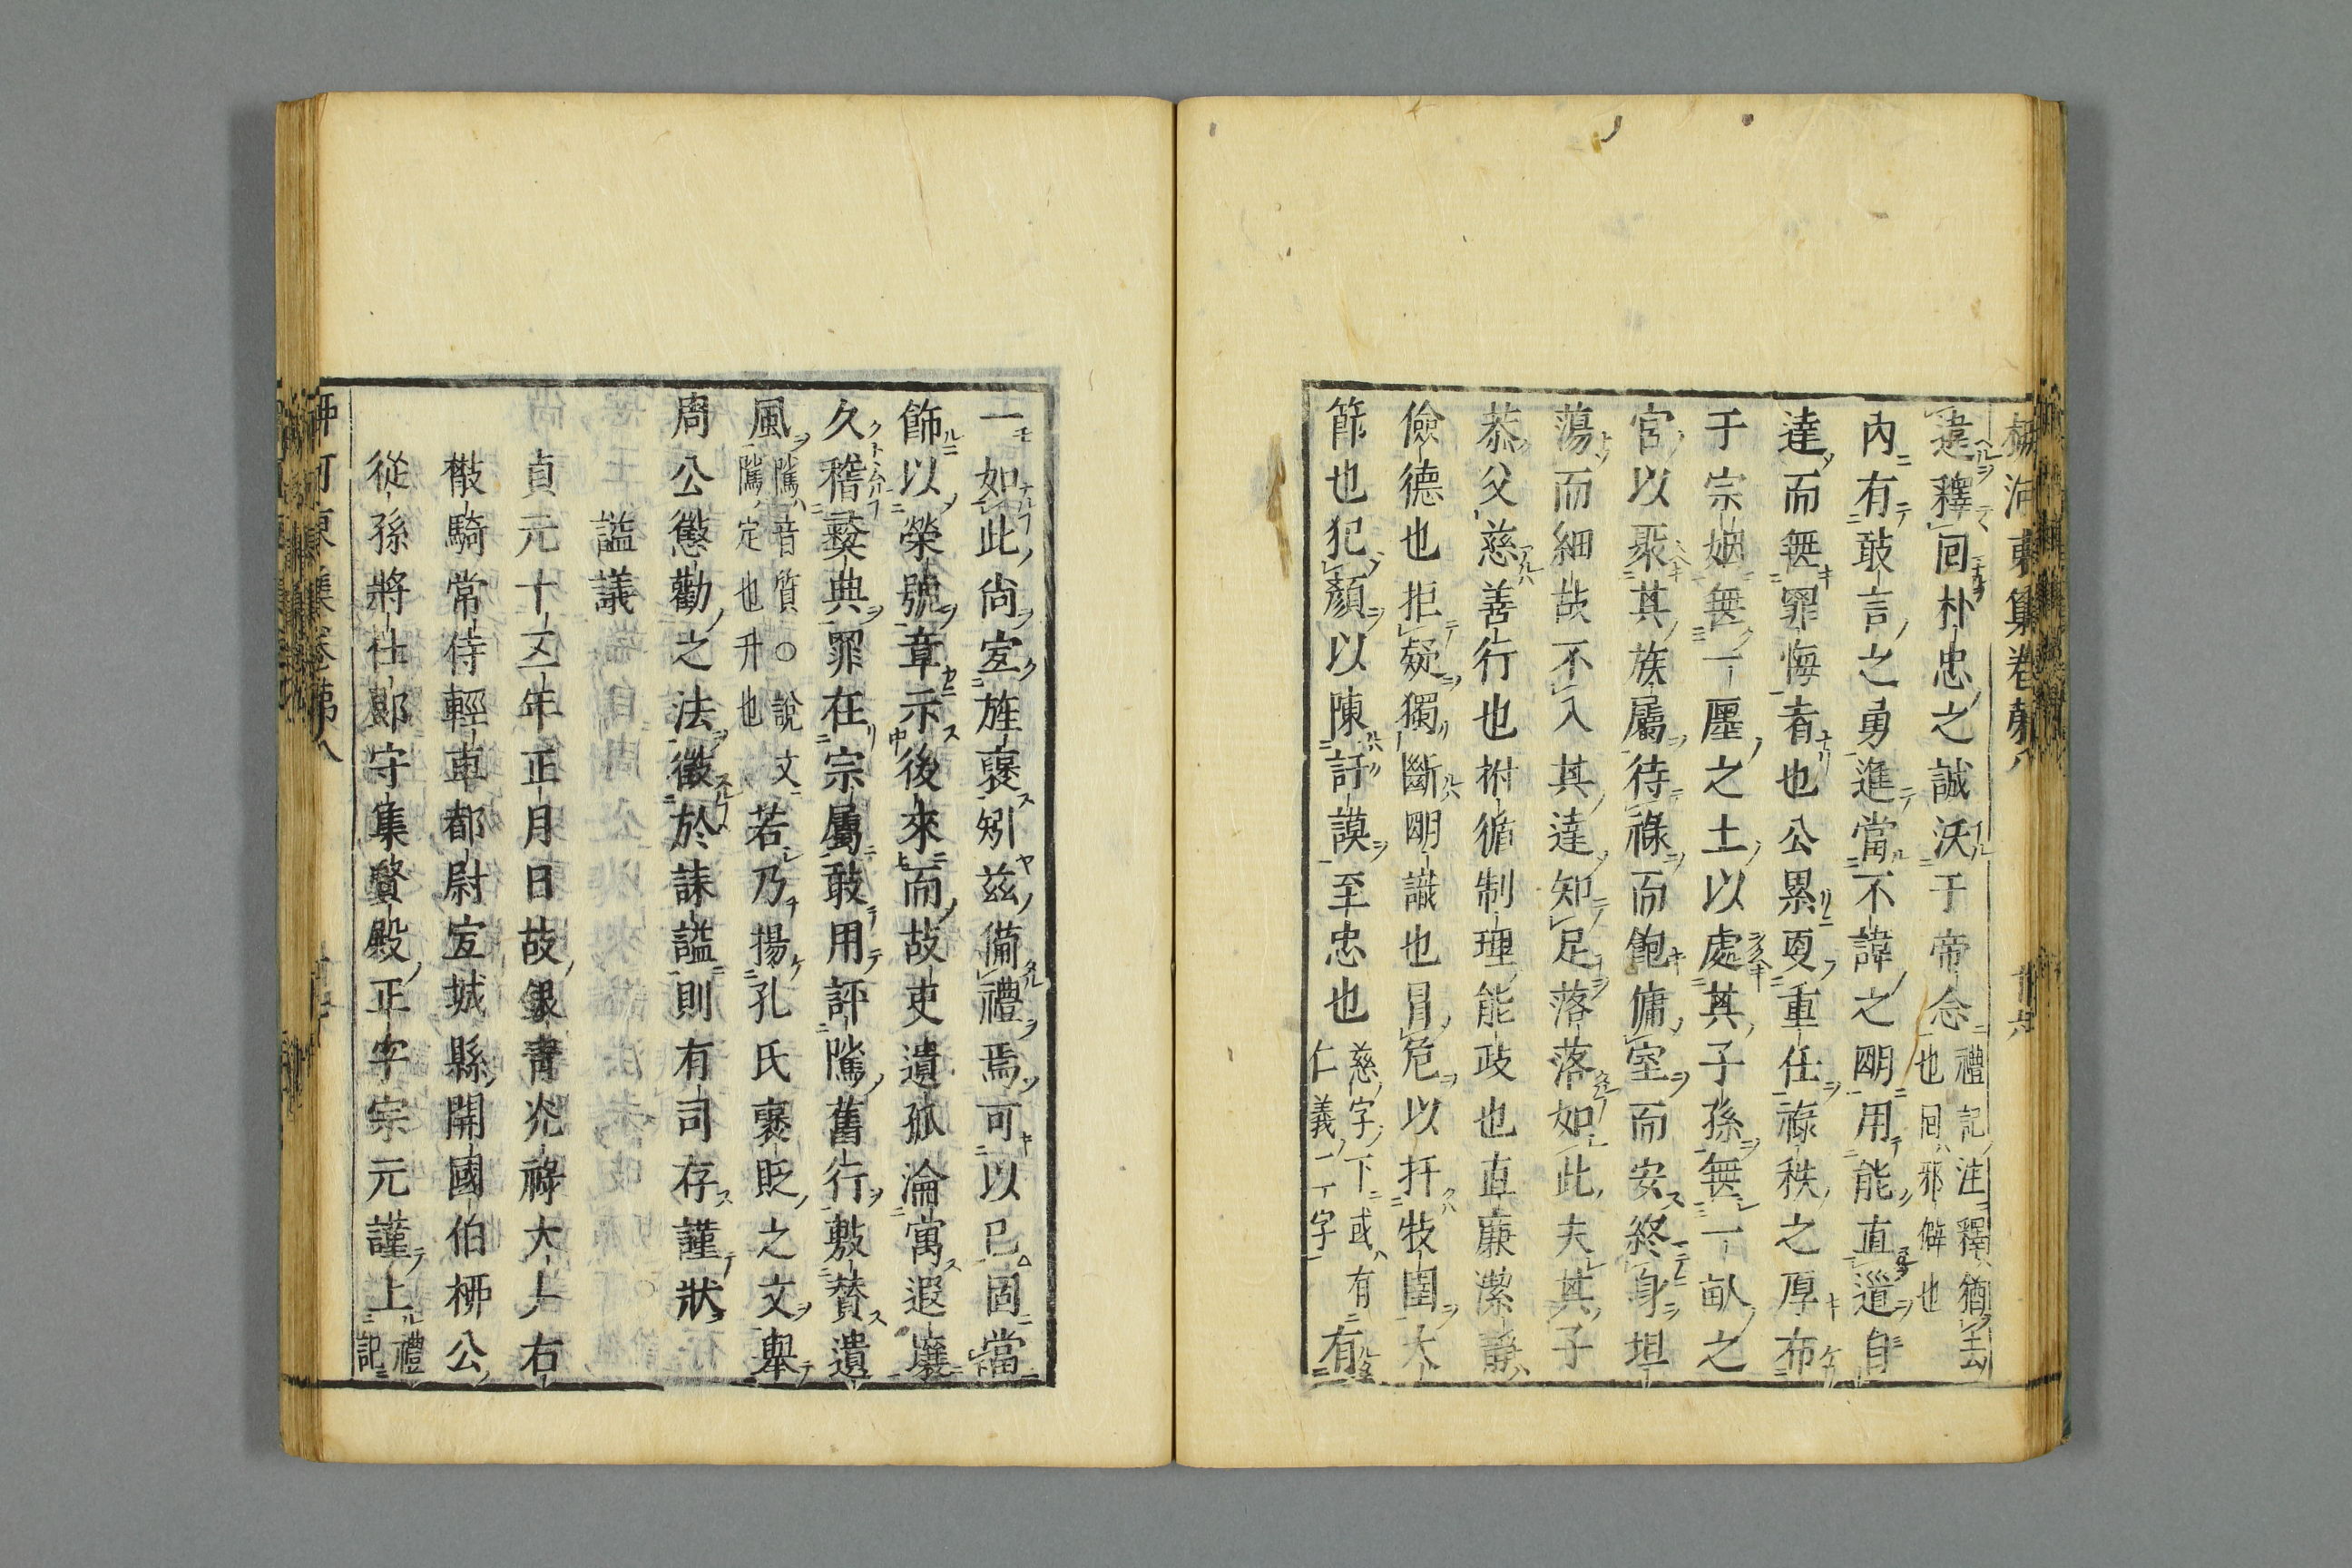 柳河東集卷第八
違釋回朴忠之誠沃于帝念禮記注釋猶去也回邪僻也
内有敢言之勇進當不諱之明用能直道自
達而無罪悔者也公累更重任祿秩之厚布
于宗姻無一廛之土以處其子孫無一畝之
宮以聚其族屬待祿而飽傭室而安終身坦
蕩而細故不入其達知足落落如此夫其子
恭父慈善行也柎循制理能政也直廉潔靜
儉德也拒疑獨斷明識也冒危以扞牧圉大
節也犯顏以陳訏謨至忠也慈字下或有仁義二字有
一如此尚宜旌褒矧茲備禮焉可以已固當
飾以榮號章示後來而故吏遺孤淪寓遐壤
久稽彝典罪在宗屬敢用評隲舊行敷贊遺
風隲音質○說文隲定也升也若乃揚孔氏褒貶之文舉
周公懲勸之法徵於誄謚則有司存謹狀
謚議
貞元十五年正月日故銀青光祿大夫右
散騎常侍輕車都尉宜城縣開國伯柳公
從孫將仕郎守集賢殿正字宗元謹上禮記
柳河東集卷第八